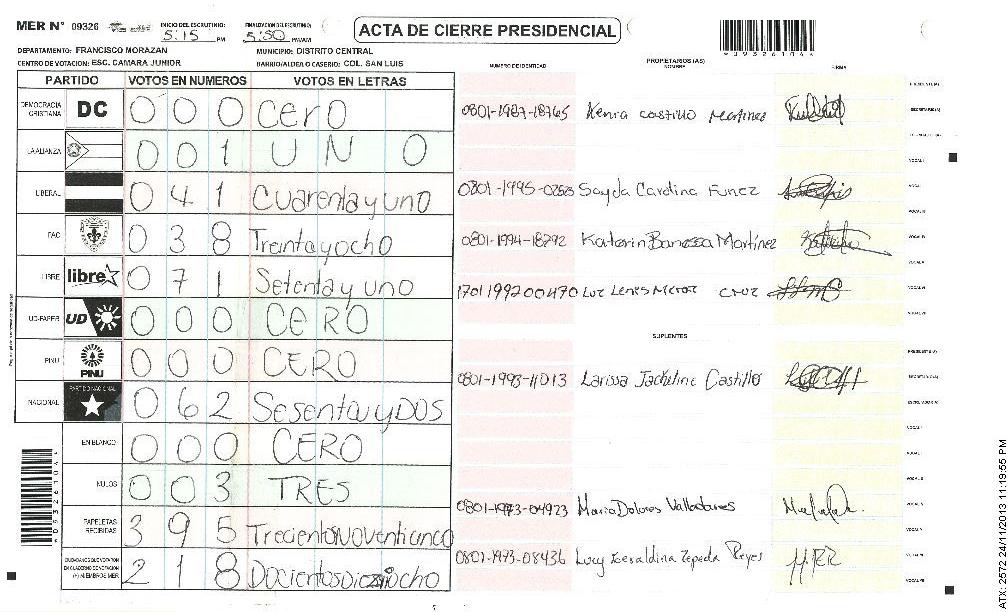 MER N° 09326 INICIO DEL ESCRUTINIO: 5:15 PM FINALIZACION DEL ESCRUTINIO: 5:50 PM/AM
ACTA DE CIERRE PRESIDENCIAL
DEPARTAMENTO: FRANCISCO MORAZAN MUNICIPIO: DISTRITO CENTRAL
CENTRO DE VOTACION: ESC. CAMARA JUNIOR BARRIO/ALDEA O CASERIO: COL. SAN LUIS
NUMERO DE IDENTIDAD PROPIETARIOS (AS) NOMBRE FIRMA
PARTIDO VOTOS EN NUMEROS VOTOS EN LETRAS
DEMOCRACIA CRISTIANA DC 0 0 0 Cero
LA ALIANZA 0 0 1 UNO
LIBERAL 0 4 1 Cuarenta y uno
PAC 0 3 8 Treinta y ocho
LIBRE libre 0 7 1 Setenta y uno
UD-FAPER UD 0 0 0 CERO
PINU PINU 0 0 0 CERO
NACIONAL PARTIDO NACIONAL 0 6 2 Sesenta y DOS
EN BLANCO 0 0 0 CERO
NULOS 0 0 3 TRES
PAPELETAS RECIBIDAS 3 9 5
2 1 8
PRESIDENTE(A)
0801-1987-18765 Kenia castillo Martinez SECRETARIO(A)
VOCAL I
Sayda Carolina Funez
VOCAL III
0801-1994-18292 Katerin Banessa Martínez VOCAL IV
VOCAL V
1701199200470 VOCAL VI
VOCAL VII
SUPLENTES
PRESIDENTE(A)
0801-1993-11013 Larissa Jackeline Castillo SECRETARIO(A)
ESCRUTADOR(A)
VOCAL I
0801-1973-04923 Maria Dolores Valladares
0801-1973-08436 Lucy Geraldina Zepeda Reyes
ATX: 2572 24/11/2013 11:19:55 PM